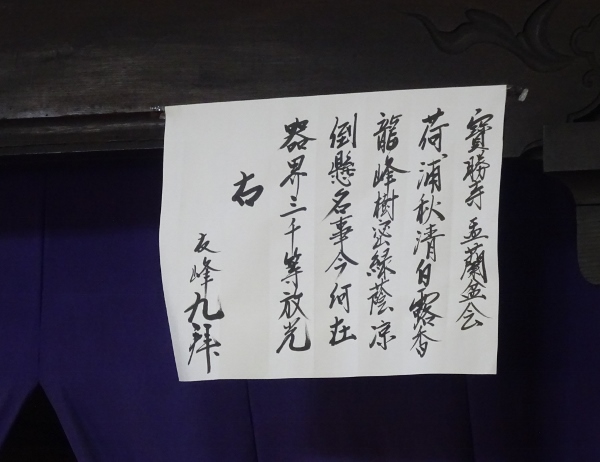 寶勝寺 盂蘭盆会
荷浦秋清白露香
龍峰樹密緑蔭凉
倒懸名事今何在
器界三千等放光
右
友峰九拜